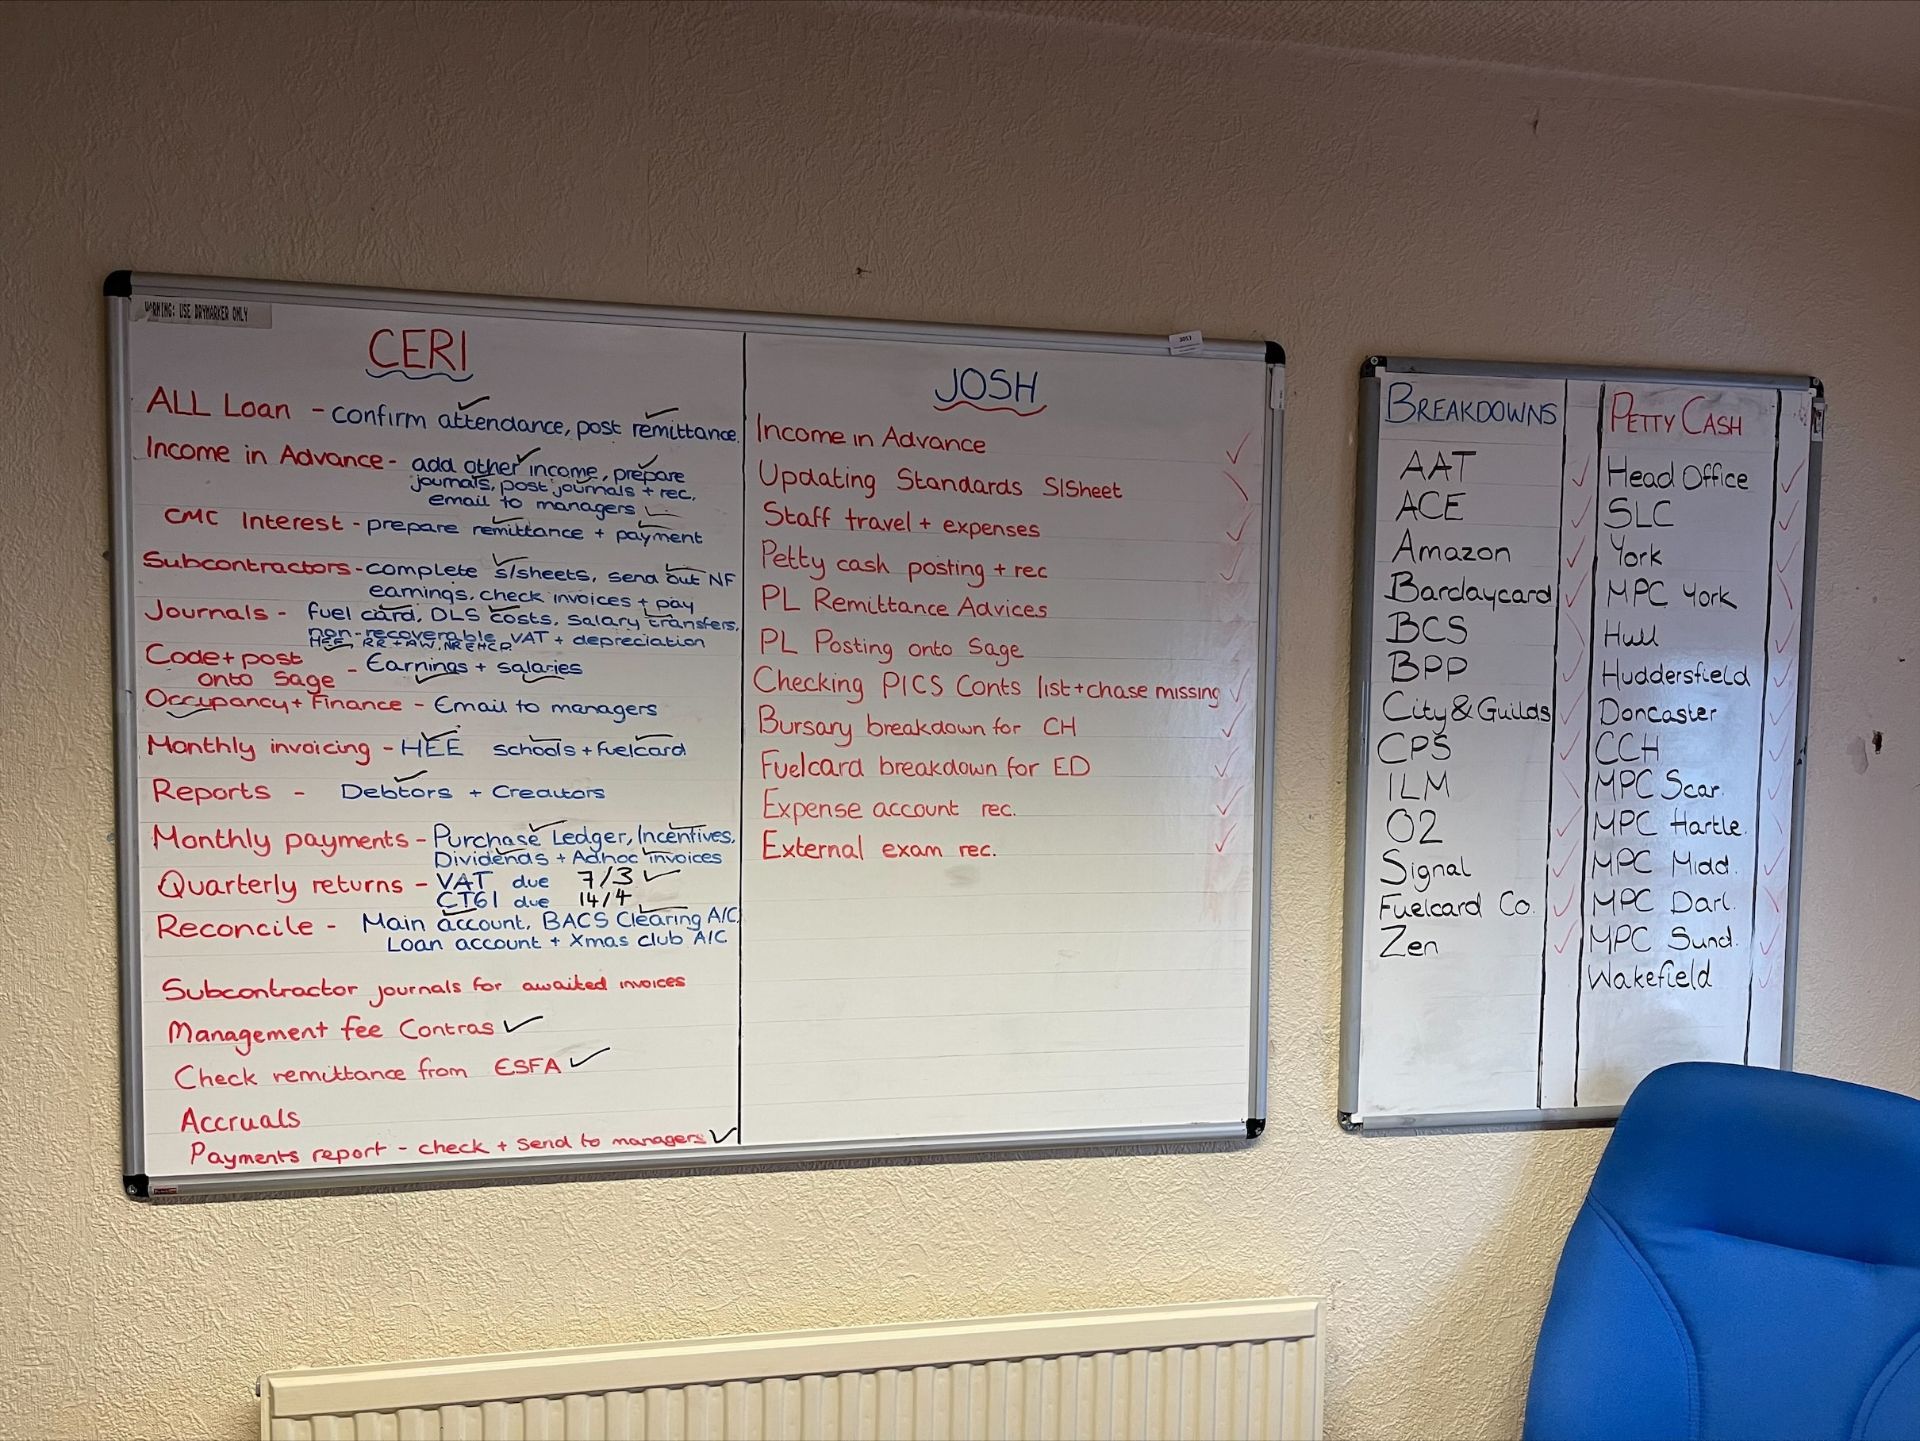 WARNING: USE DRYMARKER ONLY
CERI
ALL Loan - confirm attendance, post remittance
Income in Advance - add other income, prepare
journals, post journals + rec,
email to managers
CMC Interest - prepare remittance + payment
Subcontractors - complete s/sheets, send out NF
earnings, check invoices + pay
Journals - fuel card, DLS costs, salary transfers,
non-recoverable VAT + depreciation
HEE, RR + AW, NR EHCP
Code + post
onto Sage - Earnings + salaries
Occupancy + Finance - Email to managers
Monthly invoicing - HEE schools + fuelcard
Reports - Debtors + Creditors
Monthly payments - Purchase Ledger, Incentives,
Dividends + Adhoc invoices
Quarterly returns - VAT due 7/3
CT61 due 14/4
Reconcile - Main account, BACS Clearing A/C
Loan account + Xmas club A/C
Subcontractor journals for awaited invoices
Management fee Contras
Check remittance from ESFA
Accruals
Payments report - check + send to managers
3053
JOSH
Income in Advance
Updating Standards S/Sheet
Staff travel + expenses
Petty cash posting + rec
PL Remittance Advices
PL Posting onto Sage
Checking PICS Conts list + chase missing
Bursary breakdown for CH
Fuelcard breakdown for ED
Expense account rec.
External exam rec.
BREAKDOWNS
AAT
ACE
Amazon
Bardaycard
BCS
BPP
City & Guilds
CPS
ILM
O2
Signal
Fuelcard Co.
Zen
PETTY CASH
Head Office
SLC
York
MPC York
Hull
Huddersfield
Doncaster
CCH
MPC Scar.
MPC Hartle.
MPC Midd.
MPC Darl.
MPC Sund.
Wakefield